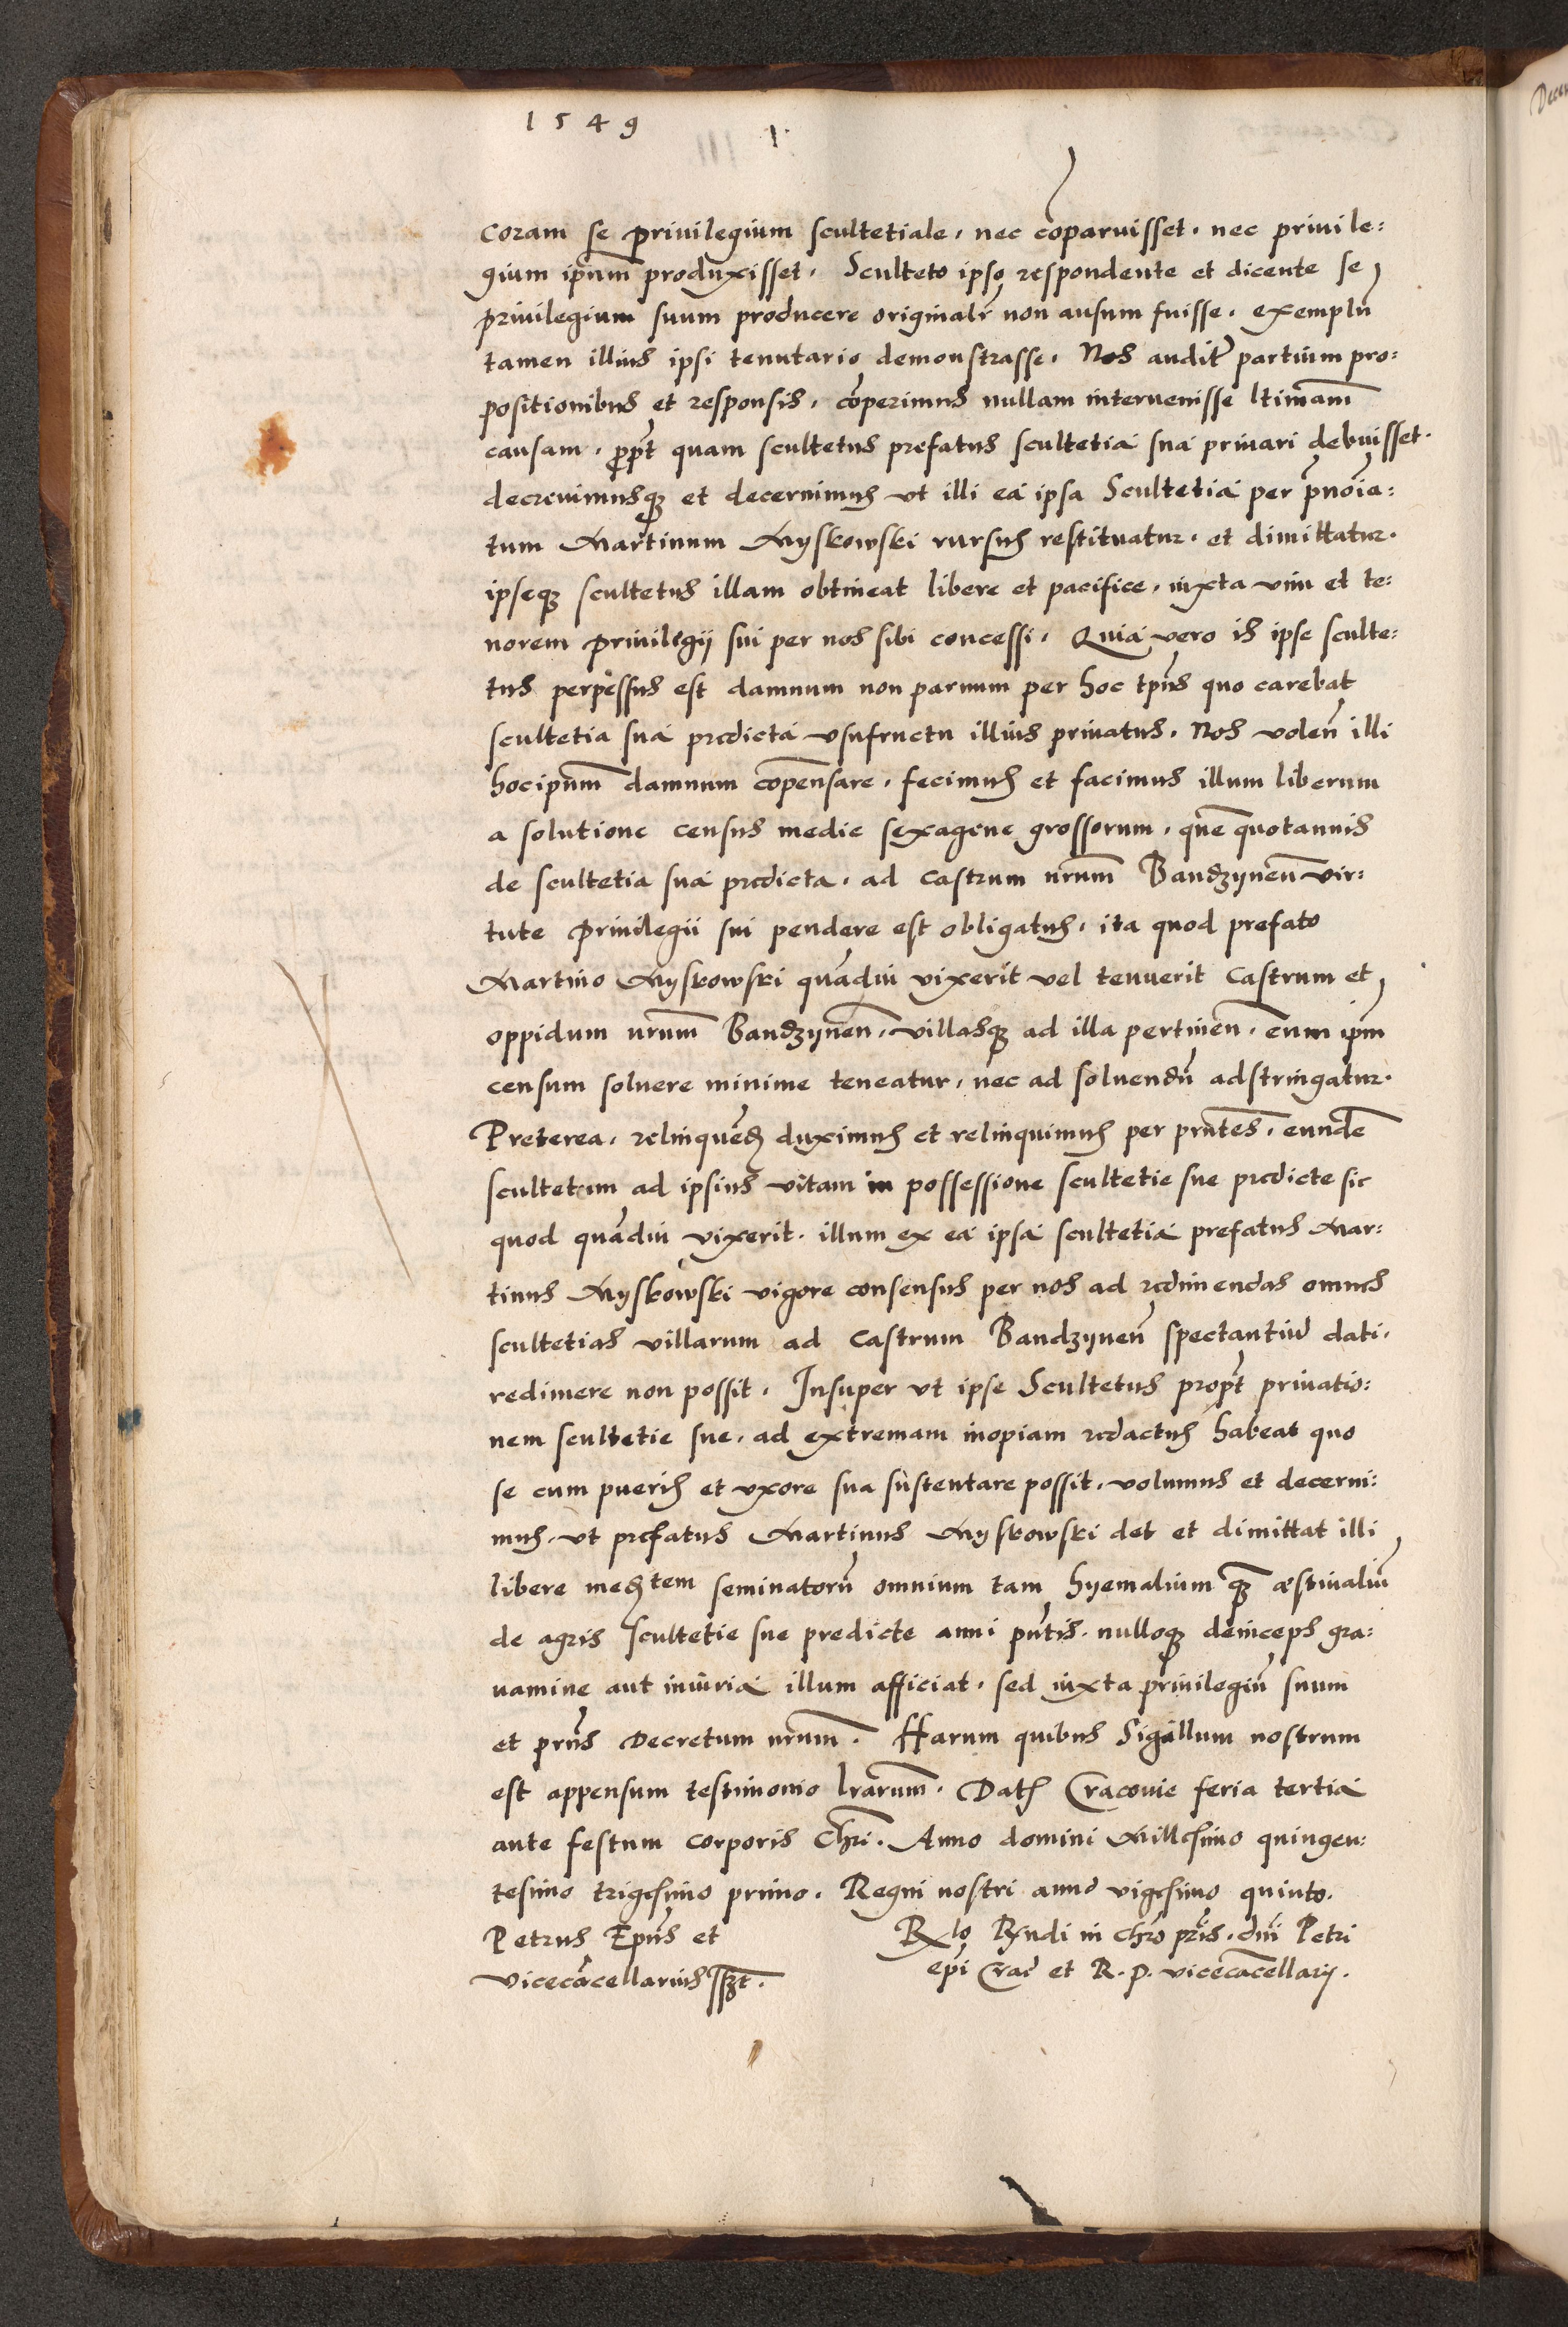 1549
coram se priuilegium scultetiale, nec cōparuisset, nec priuile:
gium ipm̄ produxisset, Sculteto ipso respondente et dicente se
priuilegium suum producere originalr̄ non ausum fuisse, exemplū
tamen illius ipsi tenutario demonstrasse. Nos auditꝭ partium pro:
positionibus et responsis, cōperimus nullam interuenisse ltimam̄
causam, propt̄ quam scultetus prefatus scultetia sua priuari debuisset.
decreuimusqꝫ et decernimus vt illi ea ipsa Scultetia per p̄noīa:
tum Martinum Myskowski rursus restituatur, et dimittatur.
ipseqꝫ scultetus illam obtineat libere et pacifice, iuxta vim et te:
norem priuilegij sui per nos sibi concessi. Quia vero is ipse sculte:
tus perpessus est damnum non paruum per hoc tp̄us quo carebat
scultetia sua predicta vsufructu illius priuatus. Nos volen̄ illi
hocipsum̄ damnum cōpensare, fecimus et facimus illum liberum
a solutione census medie sexagene grossorum, quē quotannis
de scultetia sua predicta, ad castrum nrum̄ Bandzynen̄ vir:
tute priuilegii sui pendere est obligatus, ita quod prefato
Martino Myskowski quādiu vixerit vel tenuerit castrum et
oppidum nrum̄ Bandzynen̄, villasqꝫ ad illa pertinen̄, eum ipm̄
censum soluere minime teneatur, nec ad soluendū adstringatur.
Preterea, relinquēdꝫ duximus et relinquimus per pn̄tes, eundē
scultetum ad ipsius vitam in possessione scultetie sue predicte sic
quod quādiu vixerit, illum ex ea ipsa scultetia prefatus Mar:
tinus Myskowski vigore consensus per nos ad redimendas omnes
scultetias villarum ad castrum Bandzynen̄ spectantiū dati,
redimere non possit. Insuper vt ipse Scultetus propt̄ priuatio:
nem scultetie sue, ad extremam inopiam redactus habeat quo
se cum pueris et vxore sua sustentare possit, volumus et decerni:
mus, vt prefatus Martinus Myskowski det et dimittat illi
libere medꝫtem seminatorū omnium tam hyemalium qꝫ æstiualiū
de agris scultetie sue predicte anni pn̄tis, nulloqꝫ deinceps gra:
uamine aut iniuria illum afficiat, sed iuxta priuilegiū suum
et prn̄s decretum nrum̄. Harum quibus Sigillum nostrum
est appensum testimonio lrarum̄. Datꝭ Cracouie feria tertia
ante festum corporis Chrī. Anno domini Millesimo quingen:
tesimo trigesimo primo. Regni nostri anno vigesimo quinto.
Petrus Ep̄us et
vicecācellarius sszt.
Rlo Rn̄di in chrō pris̄, dnī Petri
ep̄i Crac̄ et R. P. vicecācellarij.